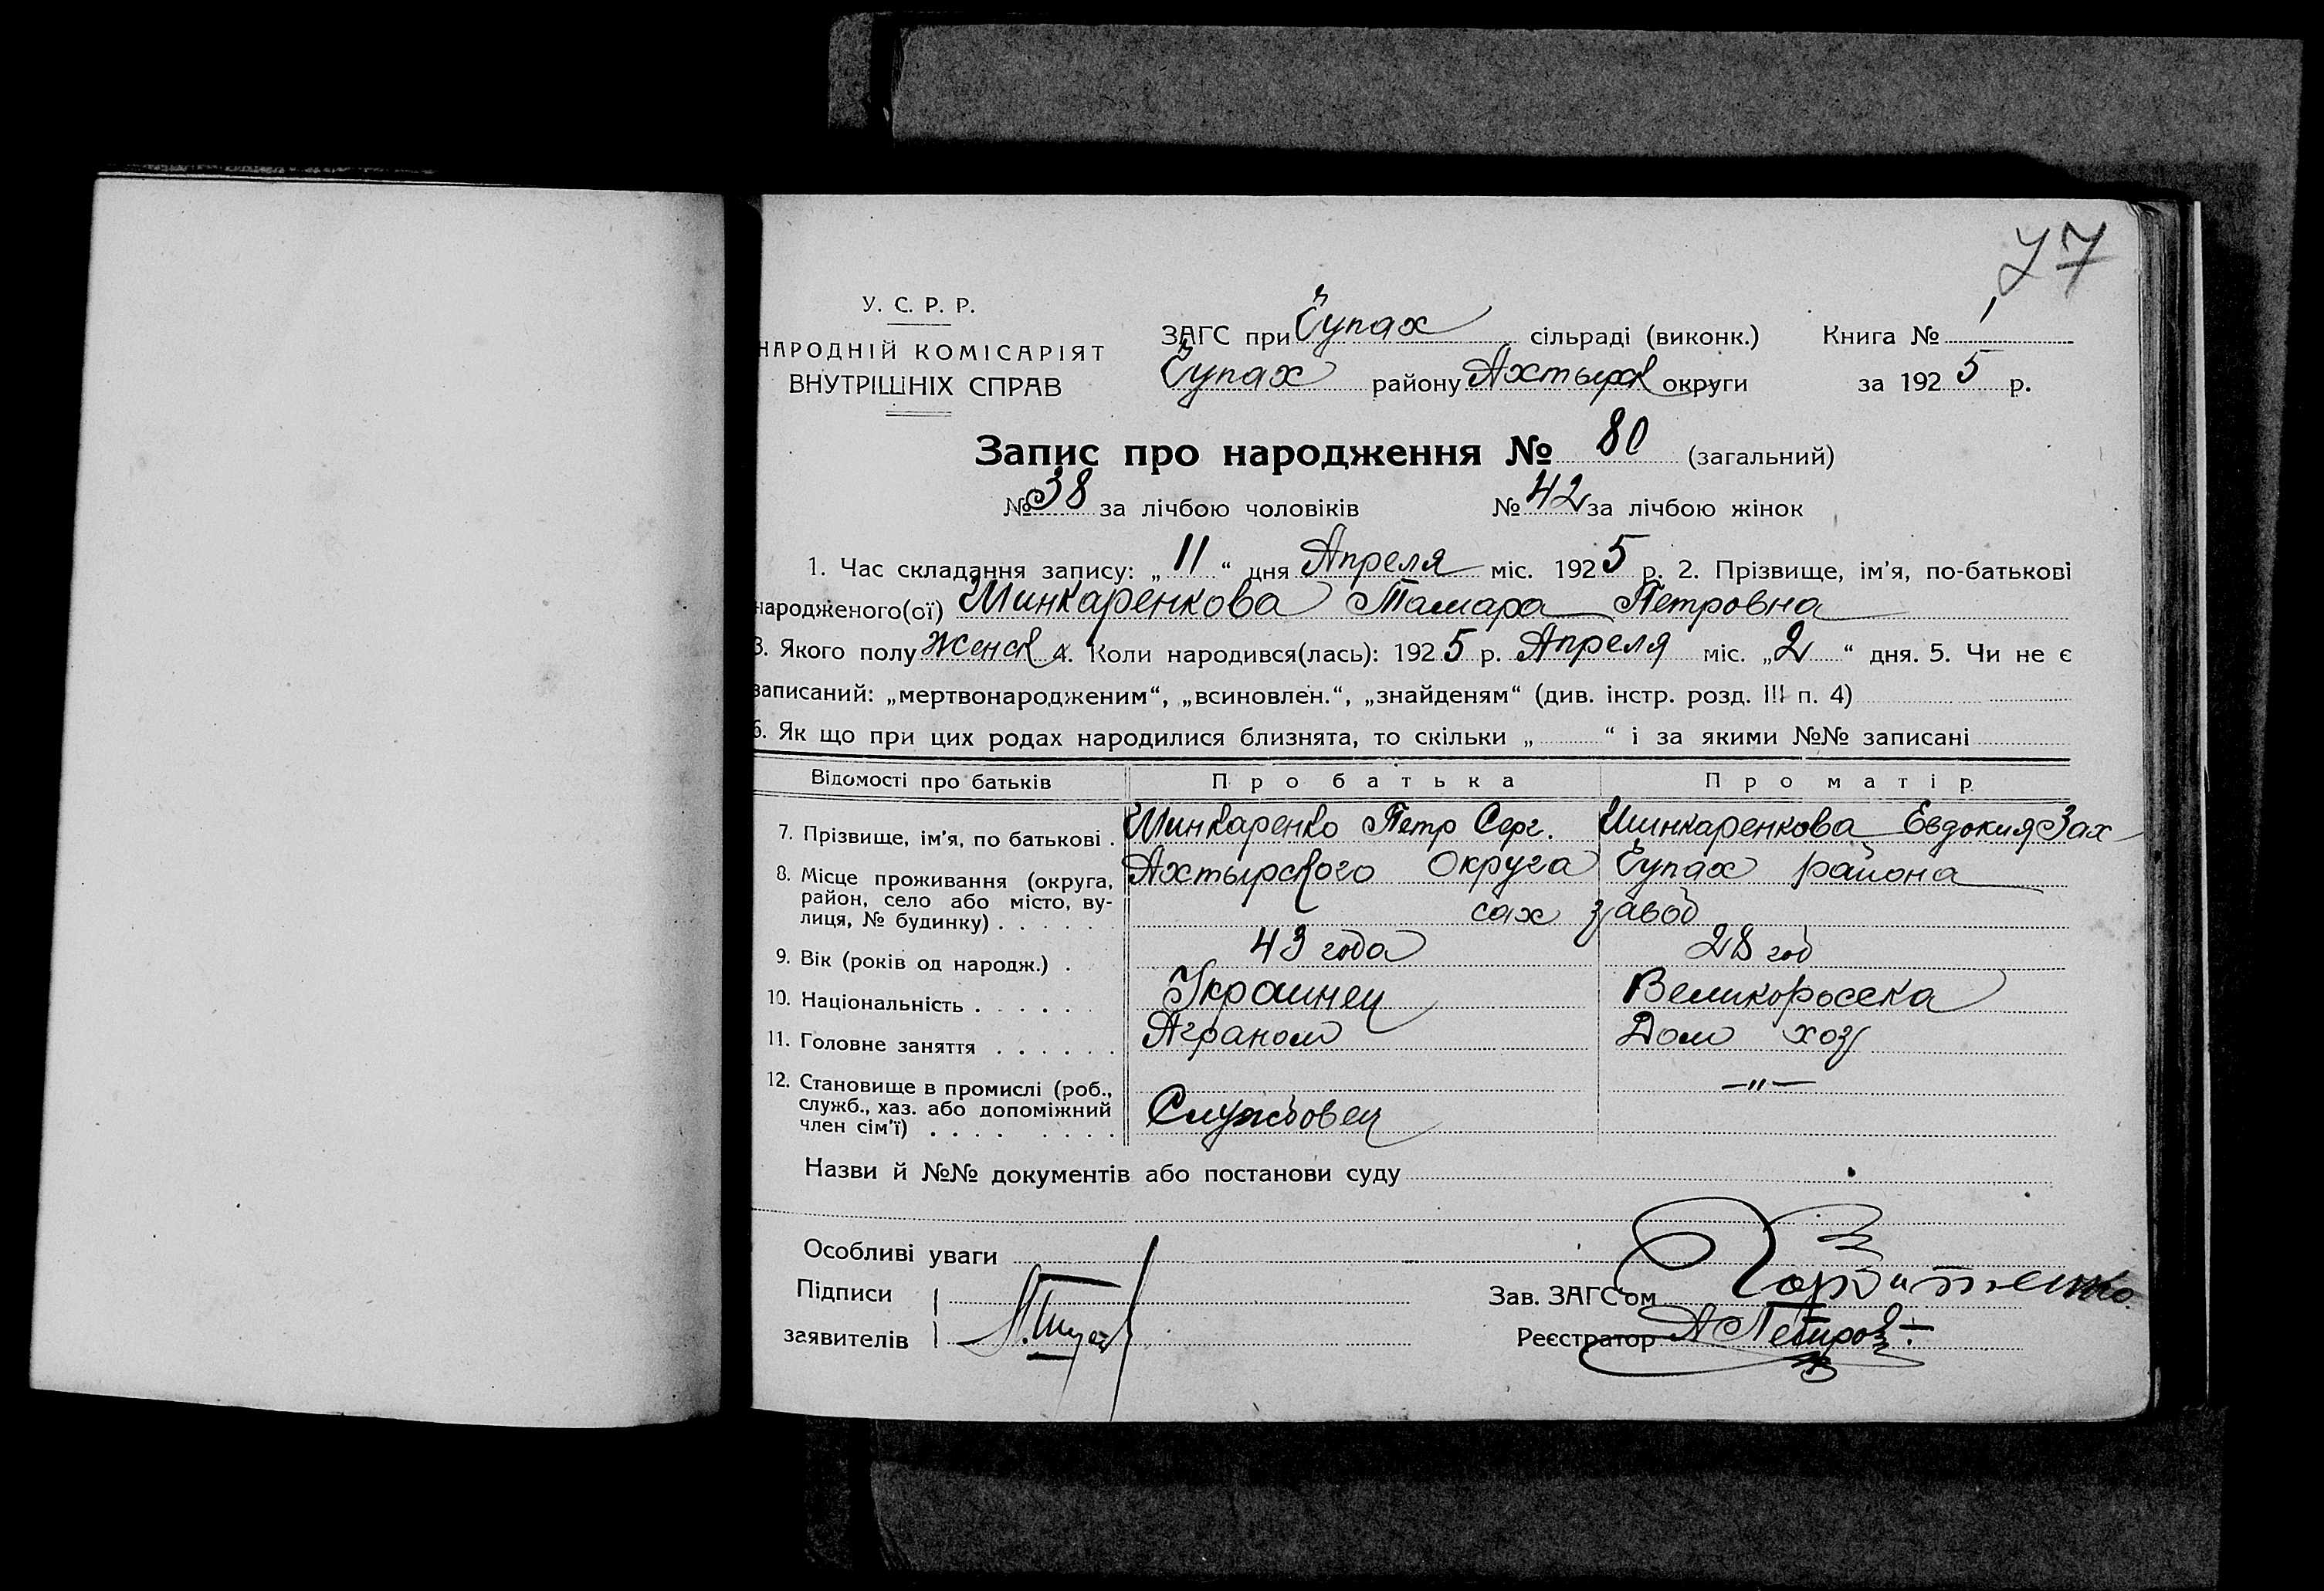 77
У. С. Р. Р.
НАРОДНІЙ КОМІСАРІЯТ
ВНУТРІШНІХ СПРАВ
ЗАГС при Чупах сільраді (виконк.) Книга № 1
Чупах району Ахтырск округи за 1925 р.
Запис про народження № 80 (загальний)
№ 38 за лічбою чоловіків № 42 за лічбою жінок
1. Час складання запису: „11“ дня Апреля міс. 1925 р. 2. Прізвище, ім'я, по-батькові
народженого(ої) Шинкаренкова Тамара Петровна
3. Якого полу Женск 4. Коли народився(лась): 1925 р. Апреля міс. „2“ дня. 5. Чи не є
записаний: „мертвонародженим“, „всиновлен.“, „знайденям“ (див. інстр. розд. III п. 4)
6. Як що при цих родах народилися близнята, то скільки „ “ і за якими №№ записані
Відомості про батьків Про батька Про матір
7. Прізвище, ім'я, по батькові . Шинкаренко Петр Серг. Шинкаренкова Евдокия Зах
8. Місце проживання (округа, Ахтырского Округа Чупах района
район, село або місто, ву-
лиця, № будинку) . . . . . . сах завод
9. Вік (років од народж.) . 43 года 28 год
10. Національність . . . . . . Украинец Великоросска
11. Головне заняття . . . . . . Аграном Дом хоз
12. Становище в промислі (роб., —„—
служб., хаз. або допоміжний Службовец
член сім'ї) . . . . . . . .
Назви й №№ документів або постанови суду
Особливі уваги
Підписи
Зав. ЗАГС'ом
заявителів
Реєстратор А Петров